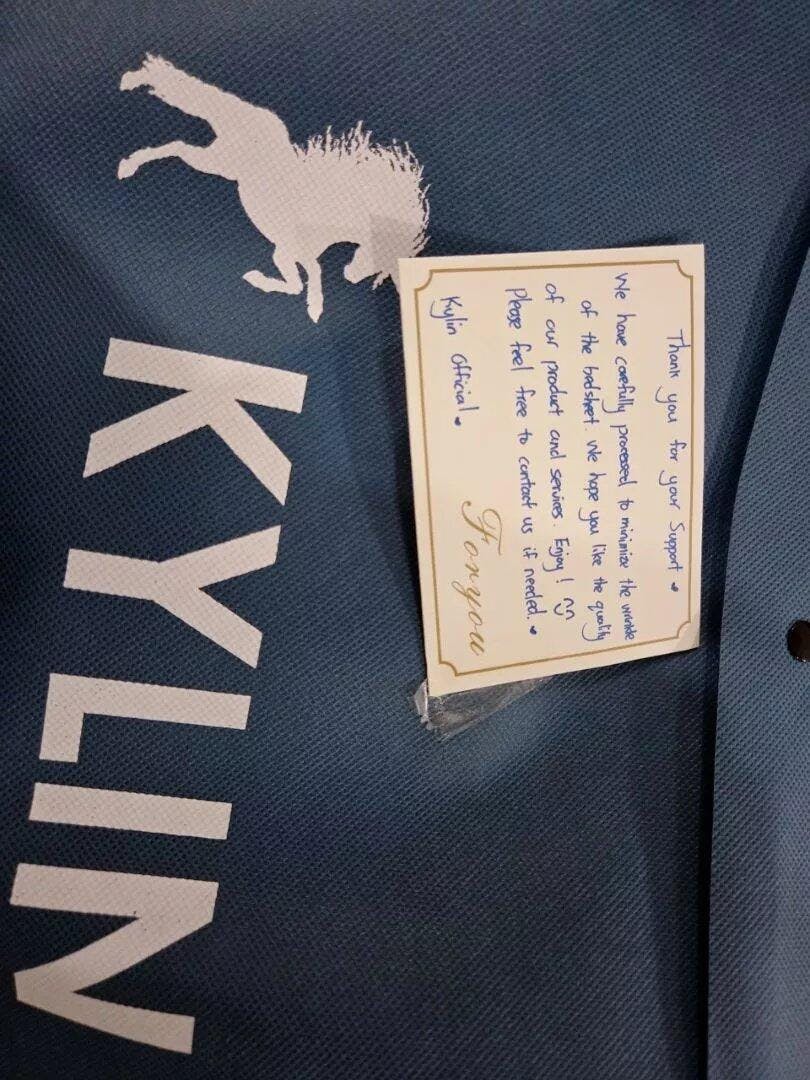 KYLIN
Thank you for your Support
We have carefully processed to minimize the wrinkle
of the bedsheet. We hope you like the quality
of our product and services. Enjoy!
Please feel free to contact us if needed.
Kylin Official.
For you